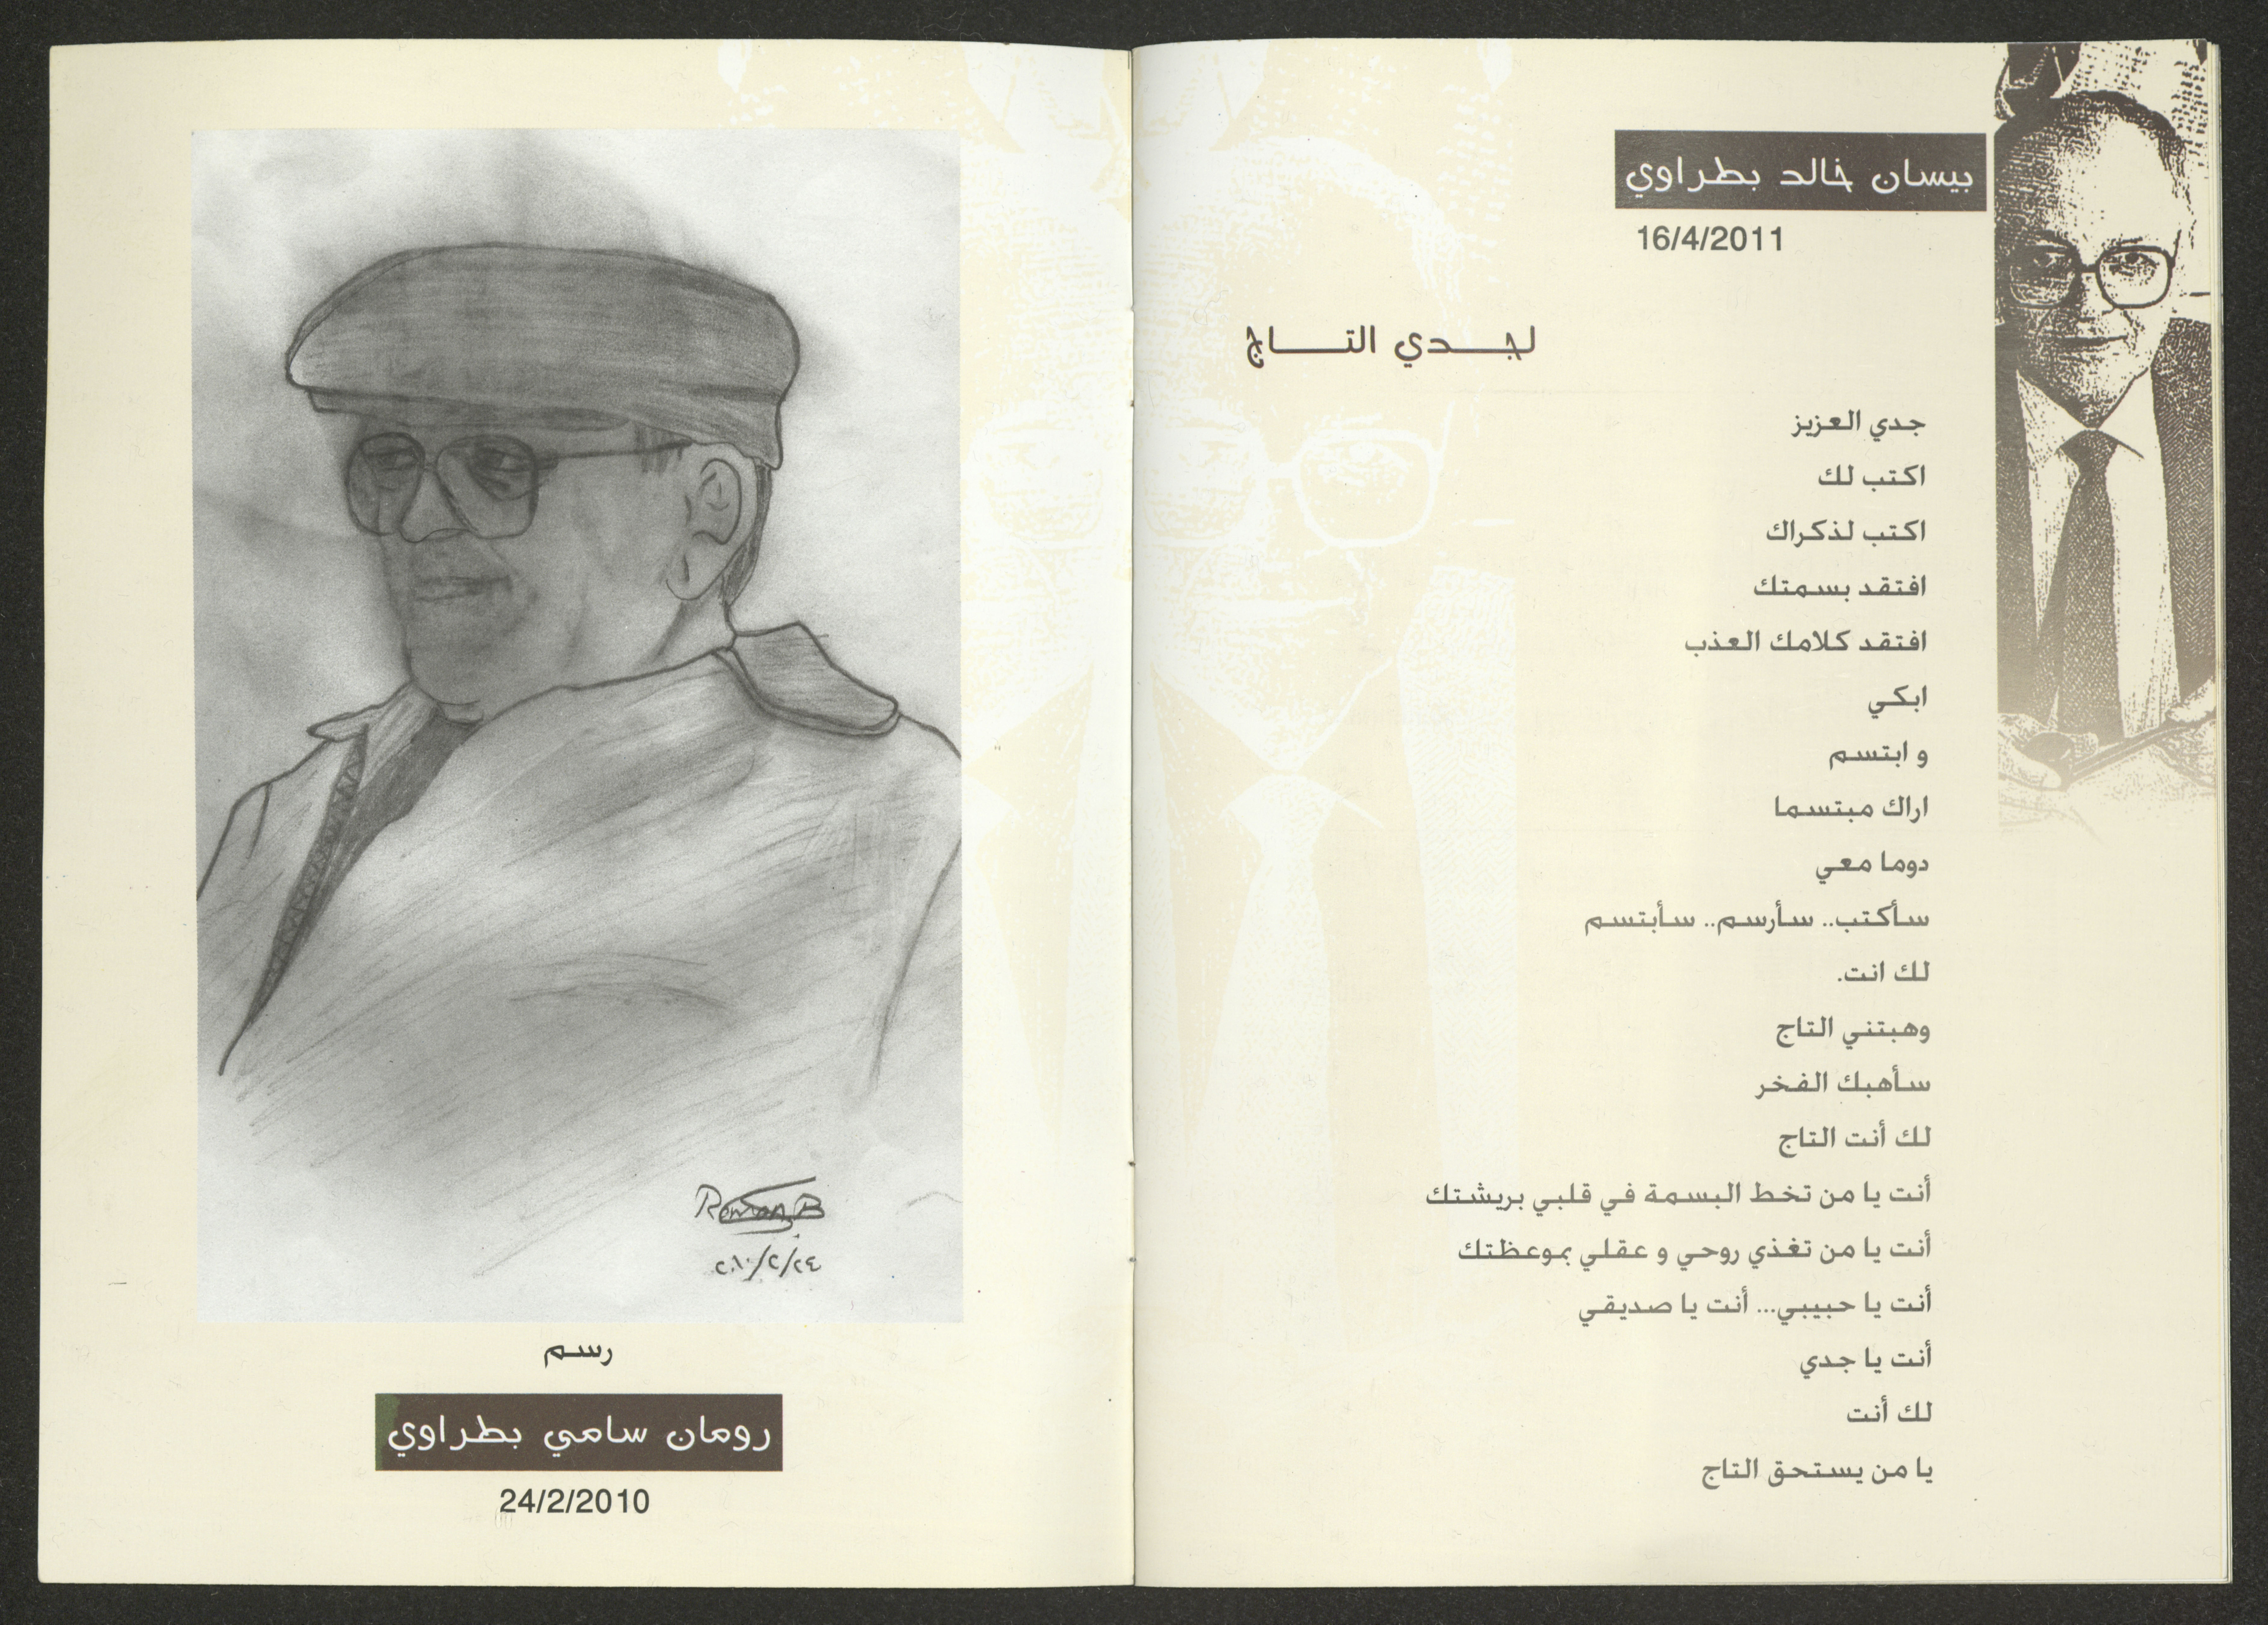 بيسان خالد بطراوي
16/4/2011
لجـــدي التـــــاج
جدي العزيز
اكتب لك
اكتب لذكراك
افتقد بسمتك
افتقد كلامك العذب
ابكي
و ابتسم
اراك مبتسما
دوما معي
سأكتب.. سأرسم.. سأبتسم
لك انت.
وهبتني التاج
سأهبك الفخر
لك أنت التاج
أنت يا من تخط البسمة في قلبي بريشتك
أنت يا من تغذي روحي و عقلي بموعظتك
أنت يا حبيبي... أنت يا صديقي
أنت يا جدي
لك أنت
يا من يستحق التاج
Roman B
٢٠١٠/٢/٢٤
رسم
رومان سامي بطراوي
24/2/2010